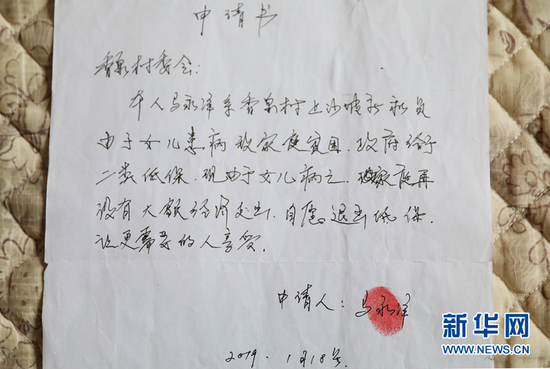 申请书
香泉村委会：
本人马永泽系香泉村上沙坡社社员
由于女儿患病致家庭贫困．政府给予
二类低保．现由于女儿病亡．家庭再
没有大额经济支出．自愿退出低保．
让更需要的人享受．
申请人：马永泽
2019．1月18号
新华网
WWW.NEWS.CN